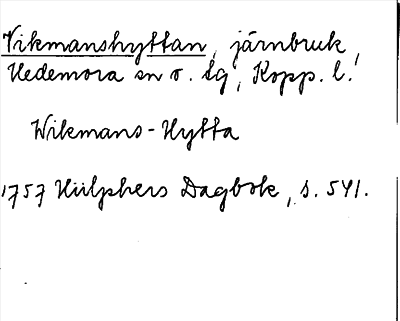 Vikmanshyttan, järnbruk,
Hedemora sn o. tg, Kopp. l.
Wikmans-Hytta
1757 Hülphers Dagbok, s. 541.